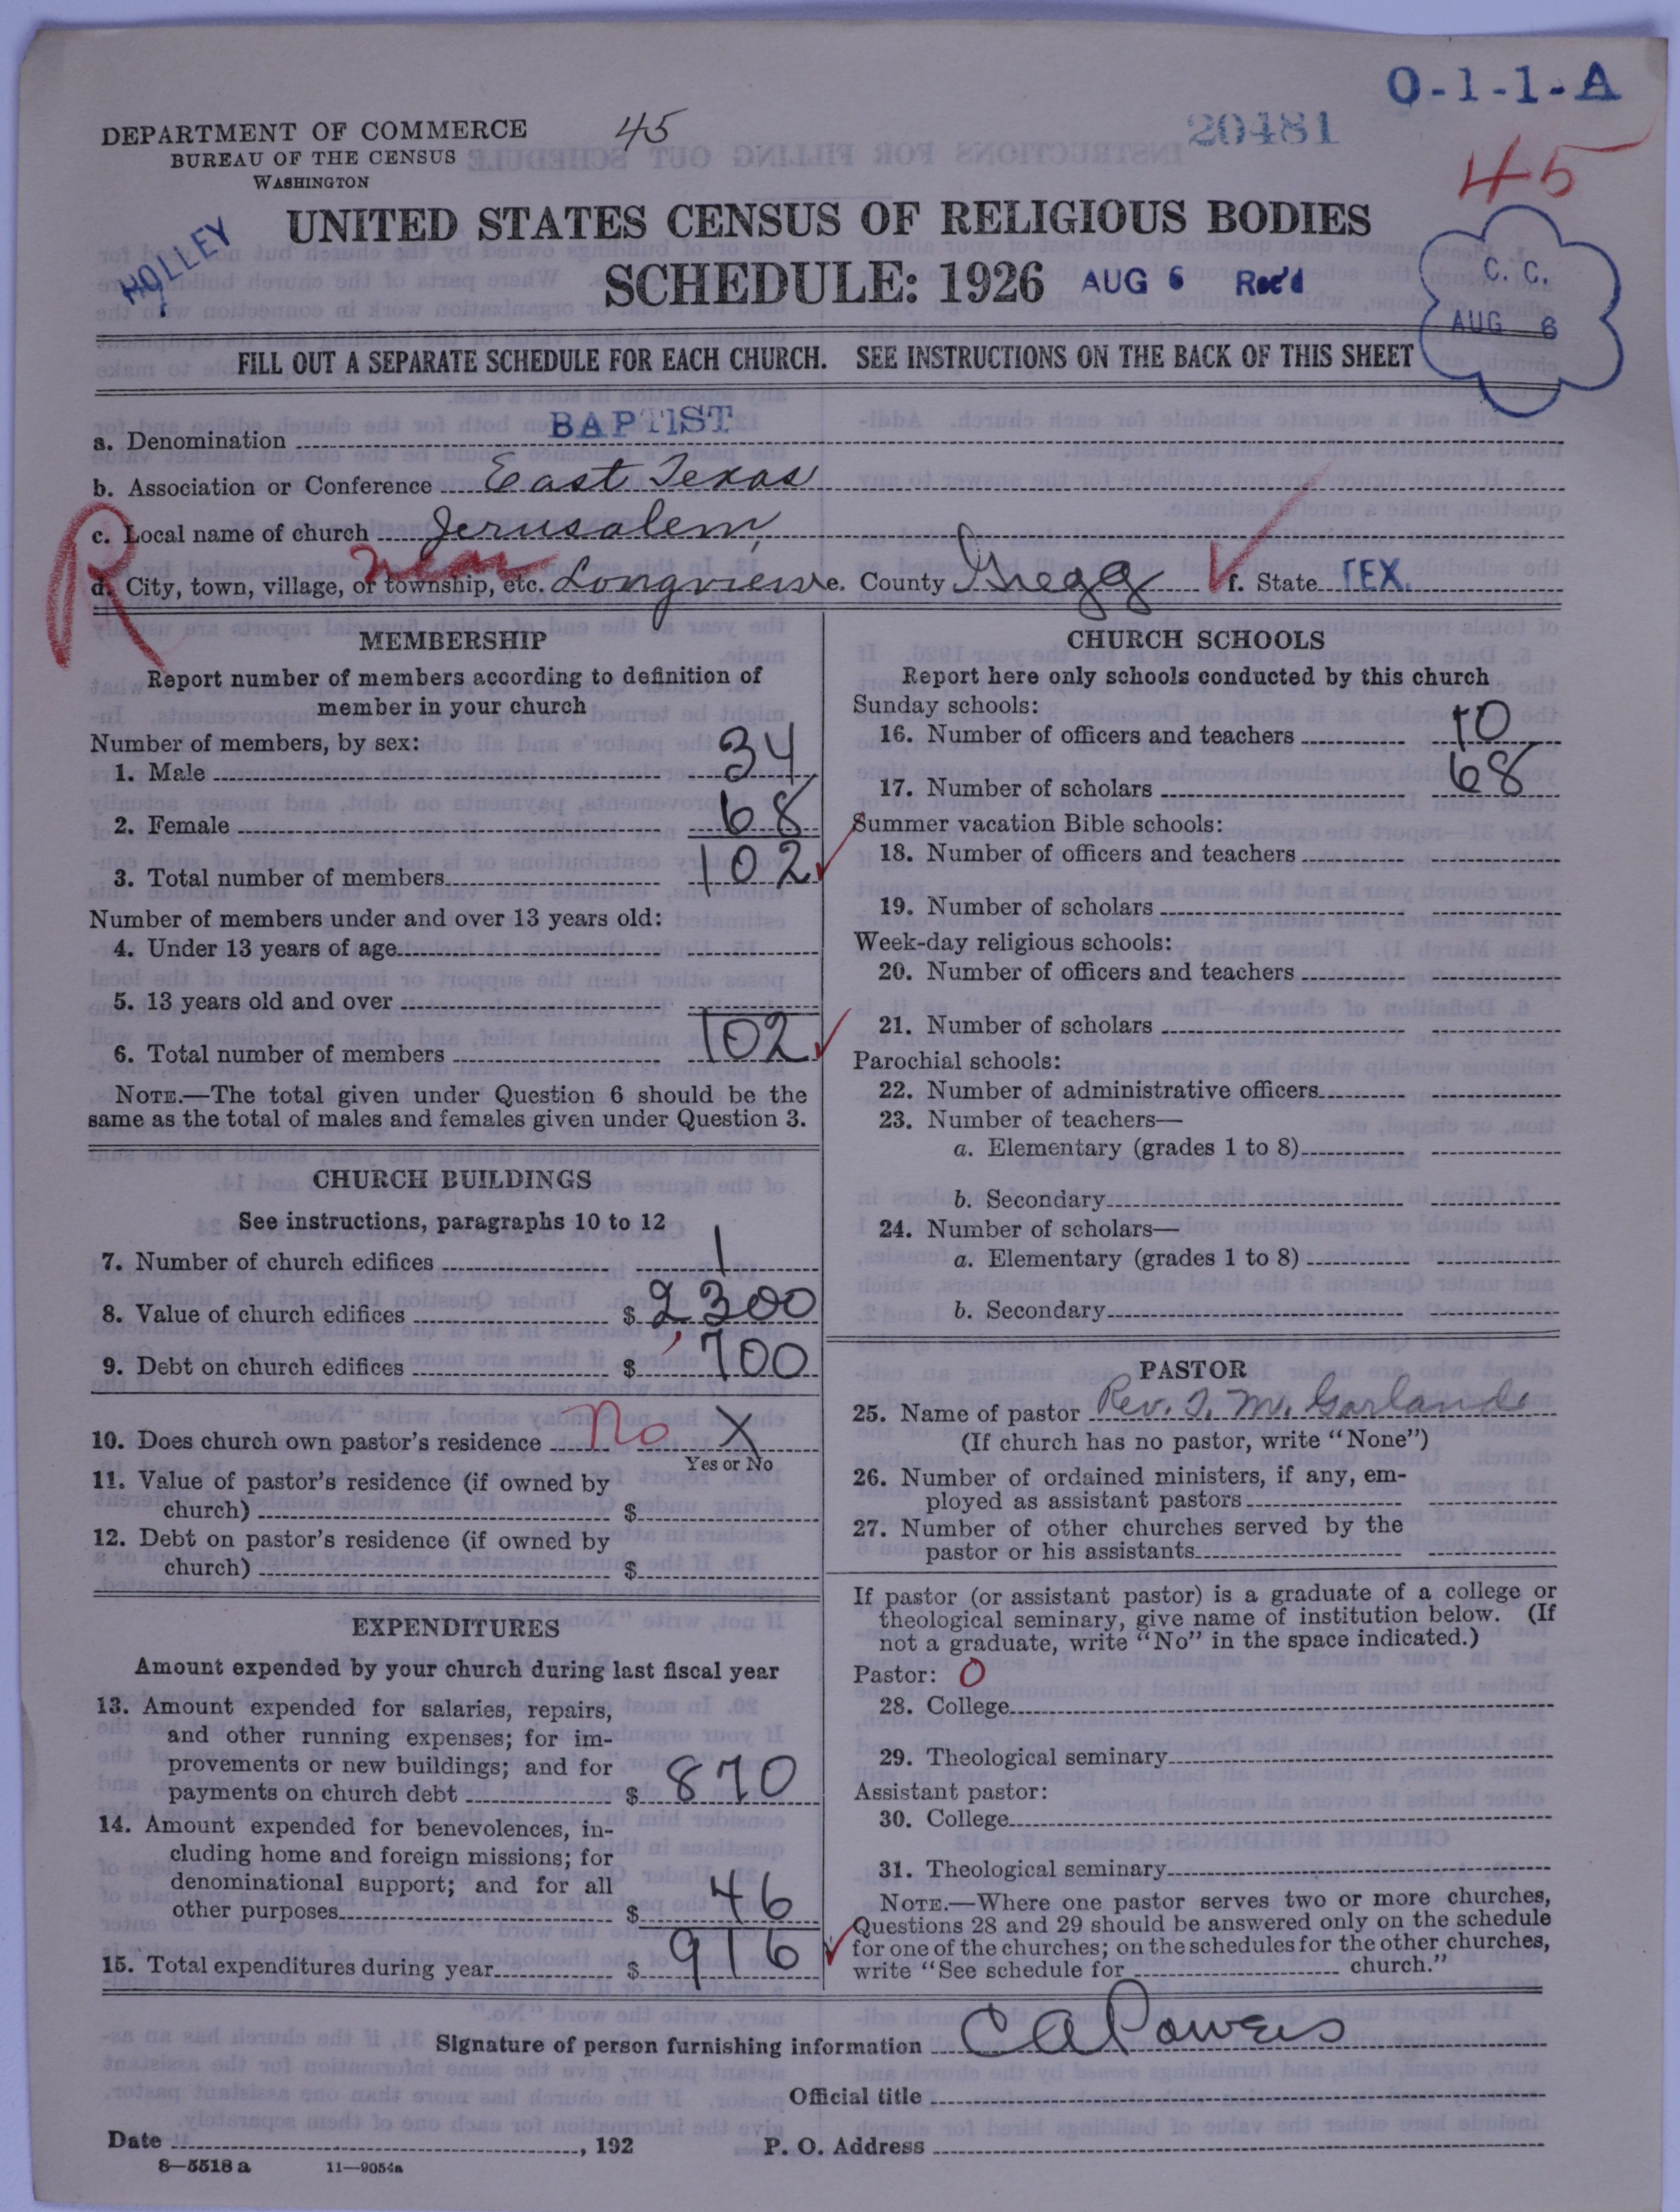 O-1-1-A
DEPARTMENT OF COMMERCE
45
20481
BUREAU OF THE CENSUS
WASHINGTON
45
UNITED STATES CENSUS OF RELIGIOUS BODIES
HOLLEY
SCHEDULE: 1926
AUG 6 Rec'd
C. C.
AUG 6
FILL OUT A SEPARATE SCHEDULE FOR EACH CHURCH. SEE INSTRUCTIONS ON THE BACK OF THIS SHEET
a. Denomination BAPTIST
b. Association or Conference East Texas
R
c. Local name of church Jerusalem,
near
d. City, town, village, or township, etc. Longview e. County Gregg f. State TEX.
MEMBERSHIP
Report number of members according to definition of
member in your church
Number of members, by sex:
1. Male 34
2. Female 68
3. Total number of members 102
Number of members under and over 13 years old:
4. Under 13 years of age
5. 13 years old and over
6. Total number of members 102
NOTE.—The total given under Question 6 should be the
same as the total of males and females given under Question 3.
CHURCH BUILDINGS
See instructions, paragraphs 10 to 12
7. Number of church edifices 1
8. Value of church edifices $ 2,300
9. Debt on church edifices $ 700
10. Does church own pastor's residence No X
Yes or No
11. Value of pastor's residence (if owned by
church) $
12. Debt on pastor's residence (if owned by
church) $
EXPENDITURES
Amount expended by your church during last fiscal year
13. Amount expended for salaries, repairs,
and other running expenses; for im-
provements or new buildings; and for
payments on church debt $ 870
14. Amount expended for benevolences, in-
cluding home and foreign missions; for
denominational support; and for all
other purposes $ 46
15. Total expenditures during year $ 916
CHURCH SCHOOLS
Report here only schools conducted by this church
Sunday schools:
16. Number of officers and teachers 10
17. Number of scholars 68
Summer vacation Bible schools:
18. Number of officers and teachers
19. Number of scholars
Week-day religious schools:
20. Number of officers and teachers
21. Number of scholars
Parochial schools:
22. Number of administrative officers
23. Number of teachers—
a. Elementary (grades 1 to 8)
b. Secondary
24. Number of scholars—
a. Elementary (grades 1 to 8)
b. Secondary
PASTOR
25. Name of pastor Rev. I. M. Garland
(If church has no pastor, write "None")
26. Number of ordained ministers, if any, em-
ployed as assistant pastors
27. Number of other churches served by the
pastor or his assistants
If pastor (or assistant pastor) is a graduate of a college or
theological seminary, give name of institution below. (If
not a graduate, write "No" in the space indicated.)
Pastor: 0
28. College
29. Theological seminary
Assistant pastor:
30. College
31. Theological seminary
NOTE.—Where one pastor serves two or more churches,
Questions 28 and 29 should be answered only on the schedule
for one of the churches; on the schedules for the other churches,
write "See schedule for church."
Signature of person furnishing information C A Powers
Official title
Date , 192 P. O. Address
8—5518 a 11—9054a